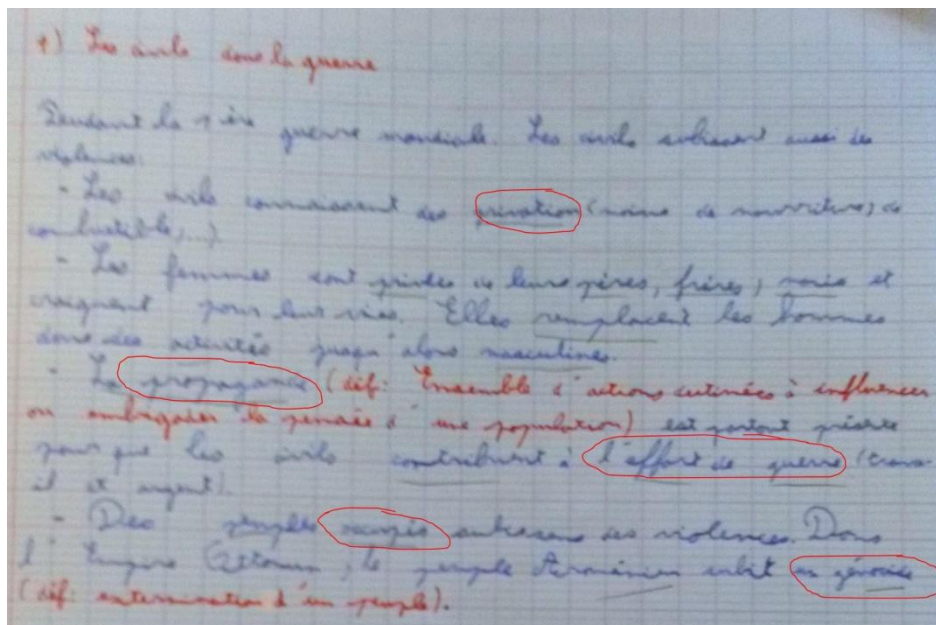 1) Les civils dans la guerre
Pendant la 1ère guerre mondiale. Les civils subissent aussi des
violences:
- Les civils connaissent des privation (moins de nourriture, de
combustible,...)
- Les femmes sont privées de leurs pères, frères, maris et
craignent pour leur vies. Elles remplacent les hommes
dans des activités jusqu'alors masculines.
- La propagande (déf: Ensemble d'actions destinées à influencer
ou embrigader la pensée d'une population) est partout présente
pour que les civils contribuent à l'effort de guerre (trava-
il et argent).
- Des peuples occupés subissent des violences. Dans
l'Empire Ottoman, le peuple Arménien subit un génocide
(déf: extermination d'un peuple).